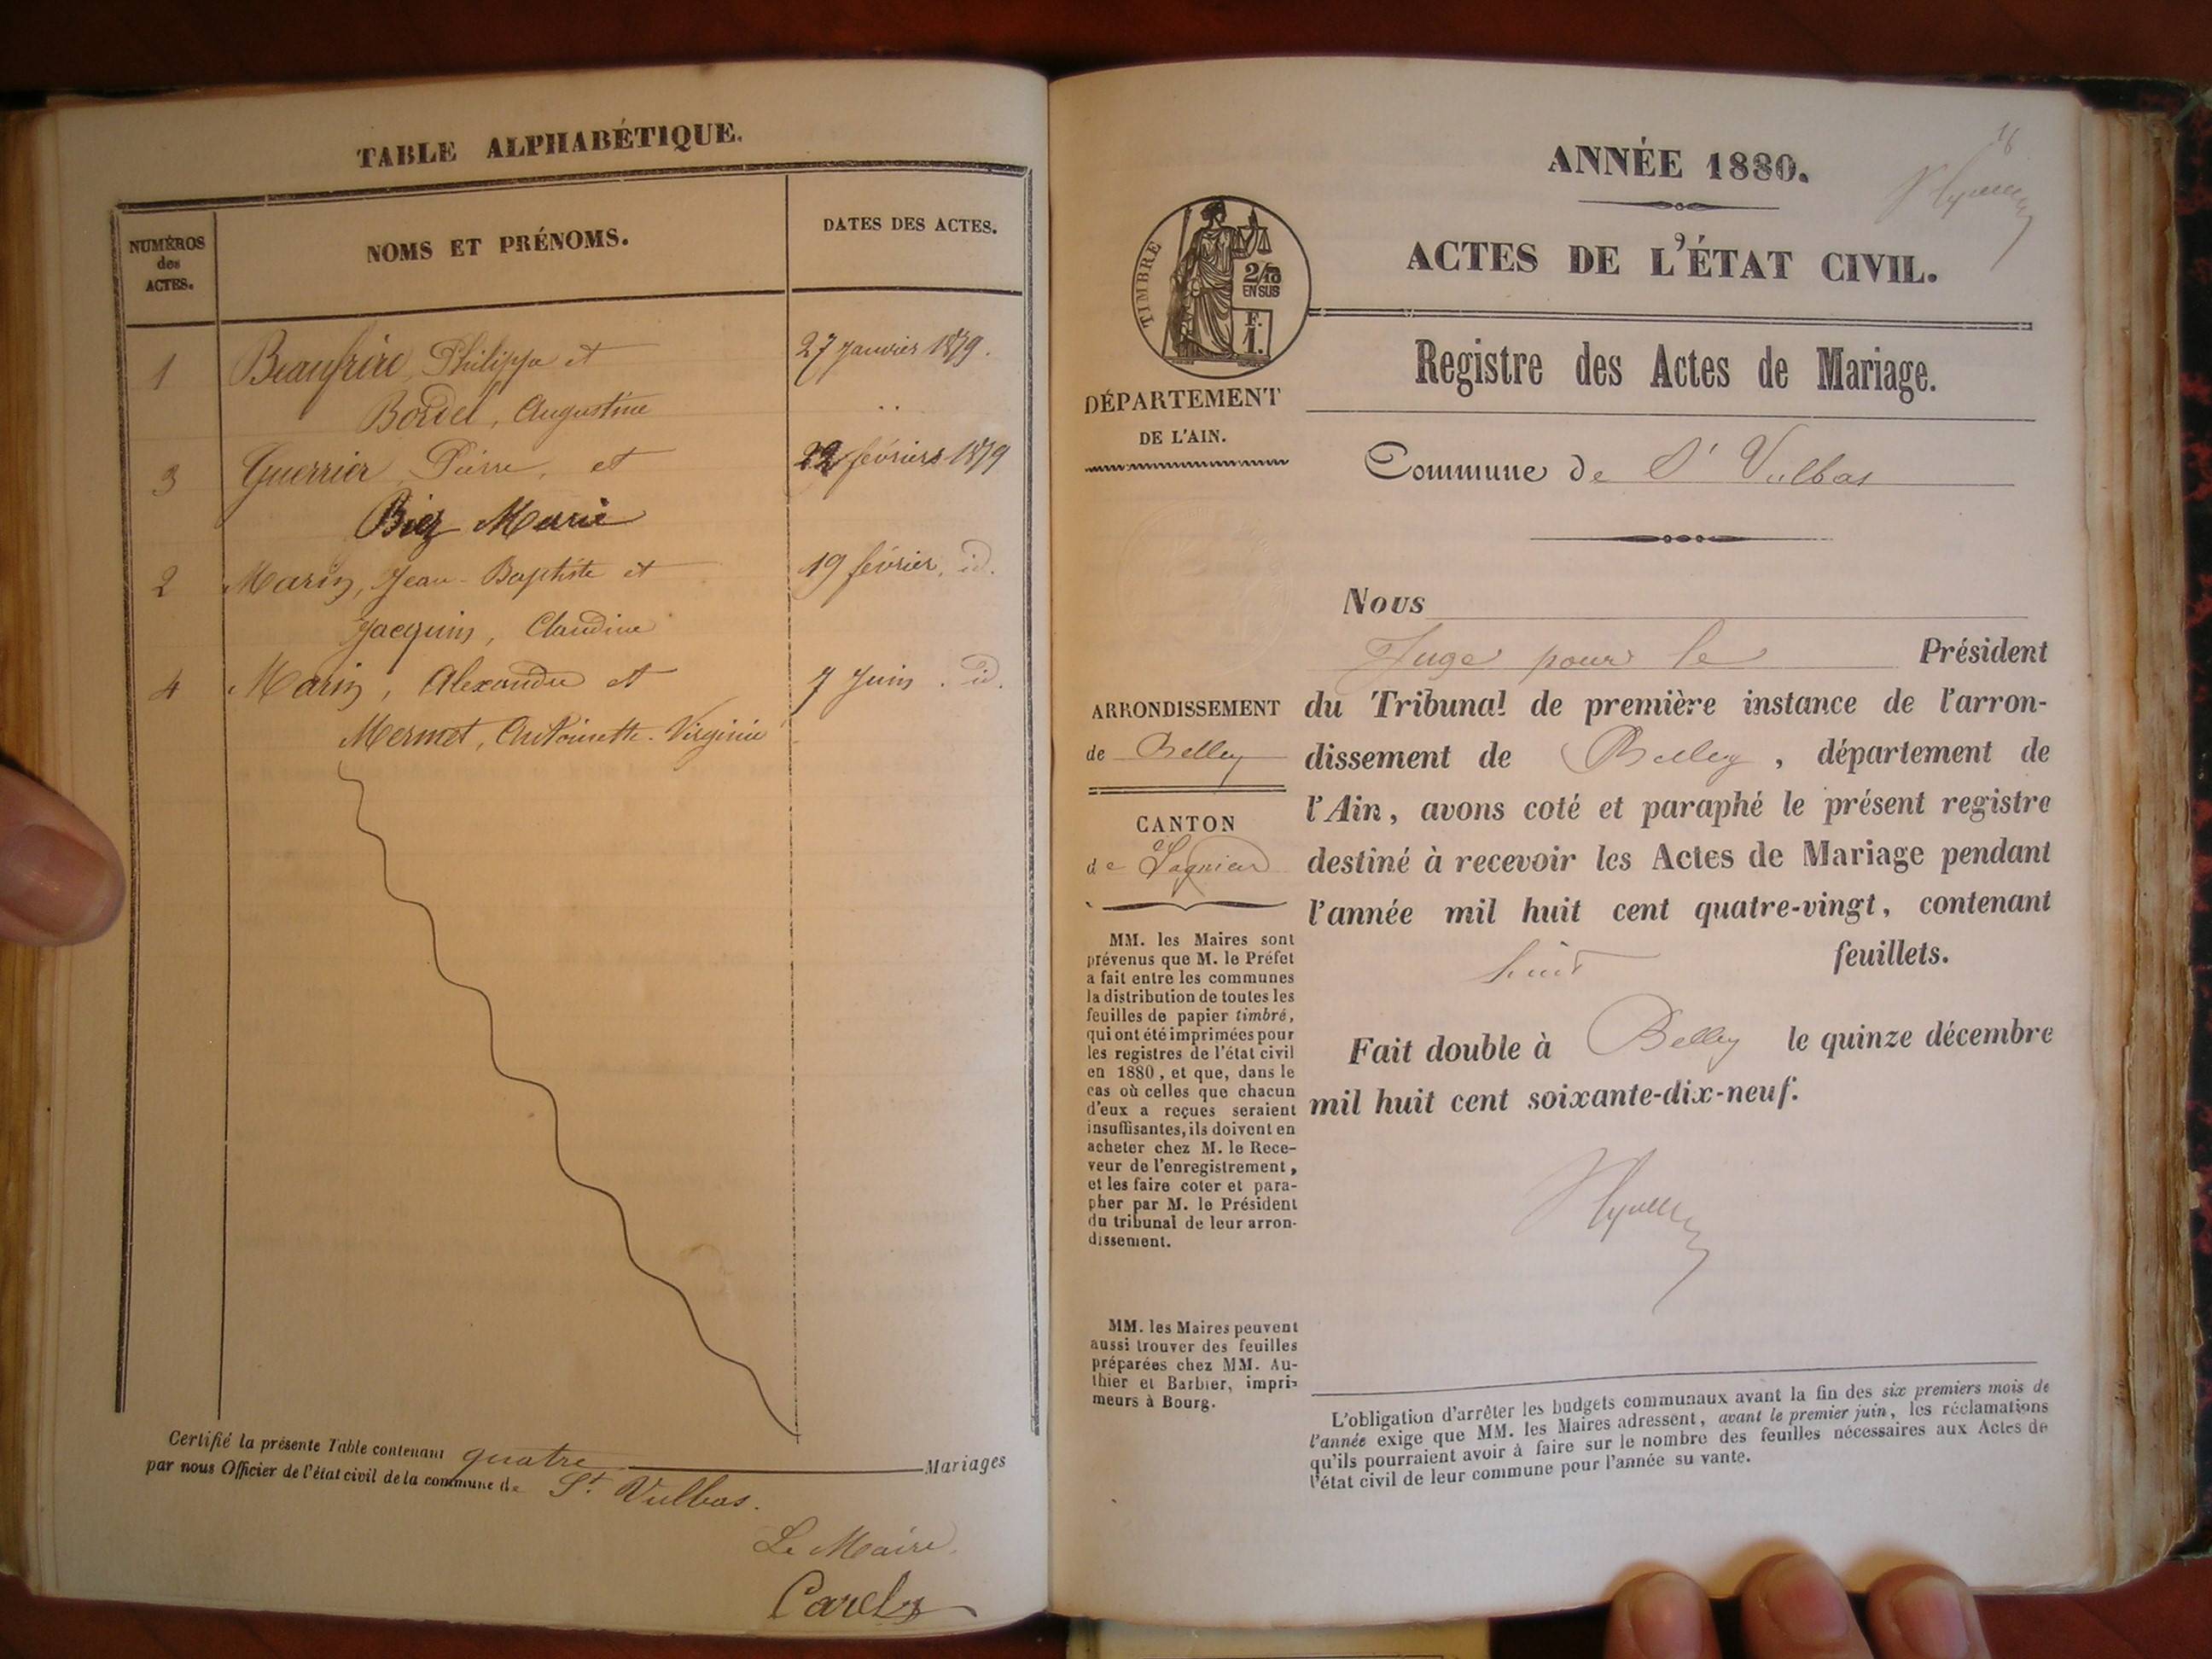 TABLE ALPHABÉTIQUE.
NUMÉROS
des
ACTES.
NOMS ET PRÉNOMS.
DATES DES ACTES.
1 Beaufrère, Philippe et 27 Janvier 1879.
Bordel, Augustine
3 Guerrier, Pierre, et 22 février 1879
Biez Marie
2 Marin, Jean-Baptiste et 19 février, id.
Jacquin, Claudine
4 Marin, Alexandre et 7 Juin. id.
Mermet, Antoinette-Virginie
Certifié la présente Table contenant quatre Mariages
par nous Officier de l'état civil de la commune de St. Vulbas.
Le Maire
ANNÉE 1880.
ACTES DE L'ÉTAT CIVIL.
TIMBRE
2/10
EN SUS
F.
1.
DÉPARTEMENT
DE L'AIN.
Registre des Actes de Mariage.
Commune de St Vulbas
Nous
Juge pour le Président
du Tribunal de première instance de l'arron-
dissement de Belley, département de
l'Ain, avons coté et paraphé le présent registre
destiné à recevoir les Actes de Mariage pendant
l'année mil huit cent quatre-vingt, contenant
huit feuillets.
Fait double à Belley le quinze décembre
mil huit cent soixante-dix-neuf.
ARRONDISSEMENT
de Belley
CANTON
de Lagnieu
MM. les Maires sont
prévenus que M. le Préfet
a fait entre les communes
la distribution de toutes les
feuilles de papier timbré,
qui ont été imprimées pour
les registres de l'état civil
en 1880, et que, dans le
cas où celles que chacun
d'eux a reçues seraient
insuffisantes, ils doivent en
acheter chez M. le Rece-
veur de l'enregistrement,
et les faire coter et para-
pher par M. le Président
du tribunal de leur arron-
dissement.
MM. les Maires peuvent
aussi trouver des feuilles
préparées chez MM. Au-
thier et Barbier, impri-
meurs à Bourg.
L'obligation d'arrêter les budgets communaux avant la fin des six premiers mois de
l'année exige que MM. les Maires adressent, avant le premier juin, les réclamations
qu'ils pourraient avoir à faire sur le nombre des feuilles nécessaires aux Actes de
l'état civil de leur commune pour l'année su vante.